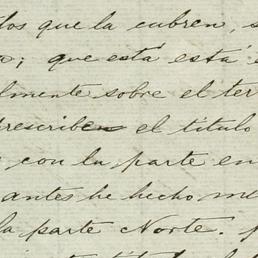 dos que la cubren, s
o; que está está e
lmente sobre el ter
prescriben el título
con la parte en
antes he hecho me
la parte Norte.